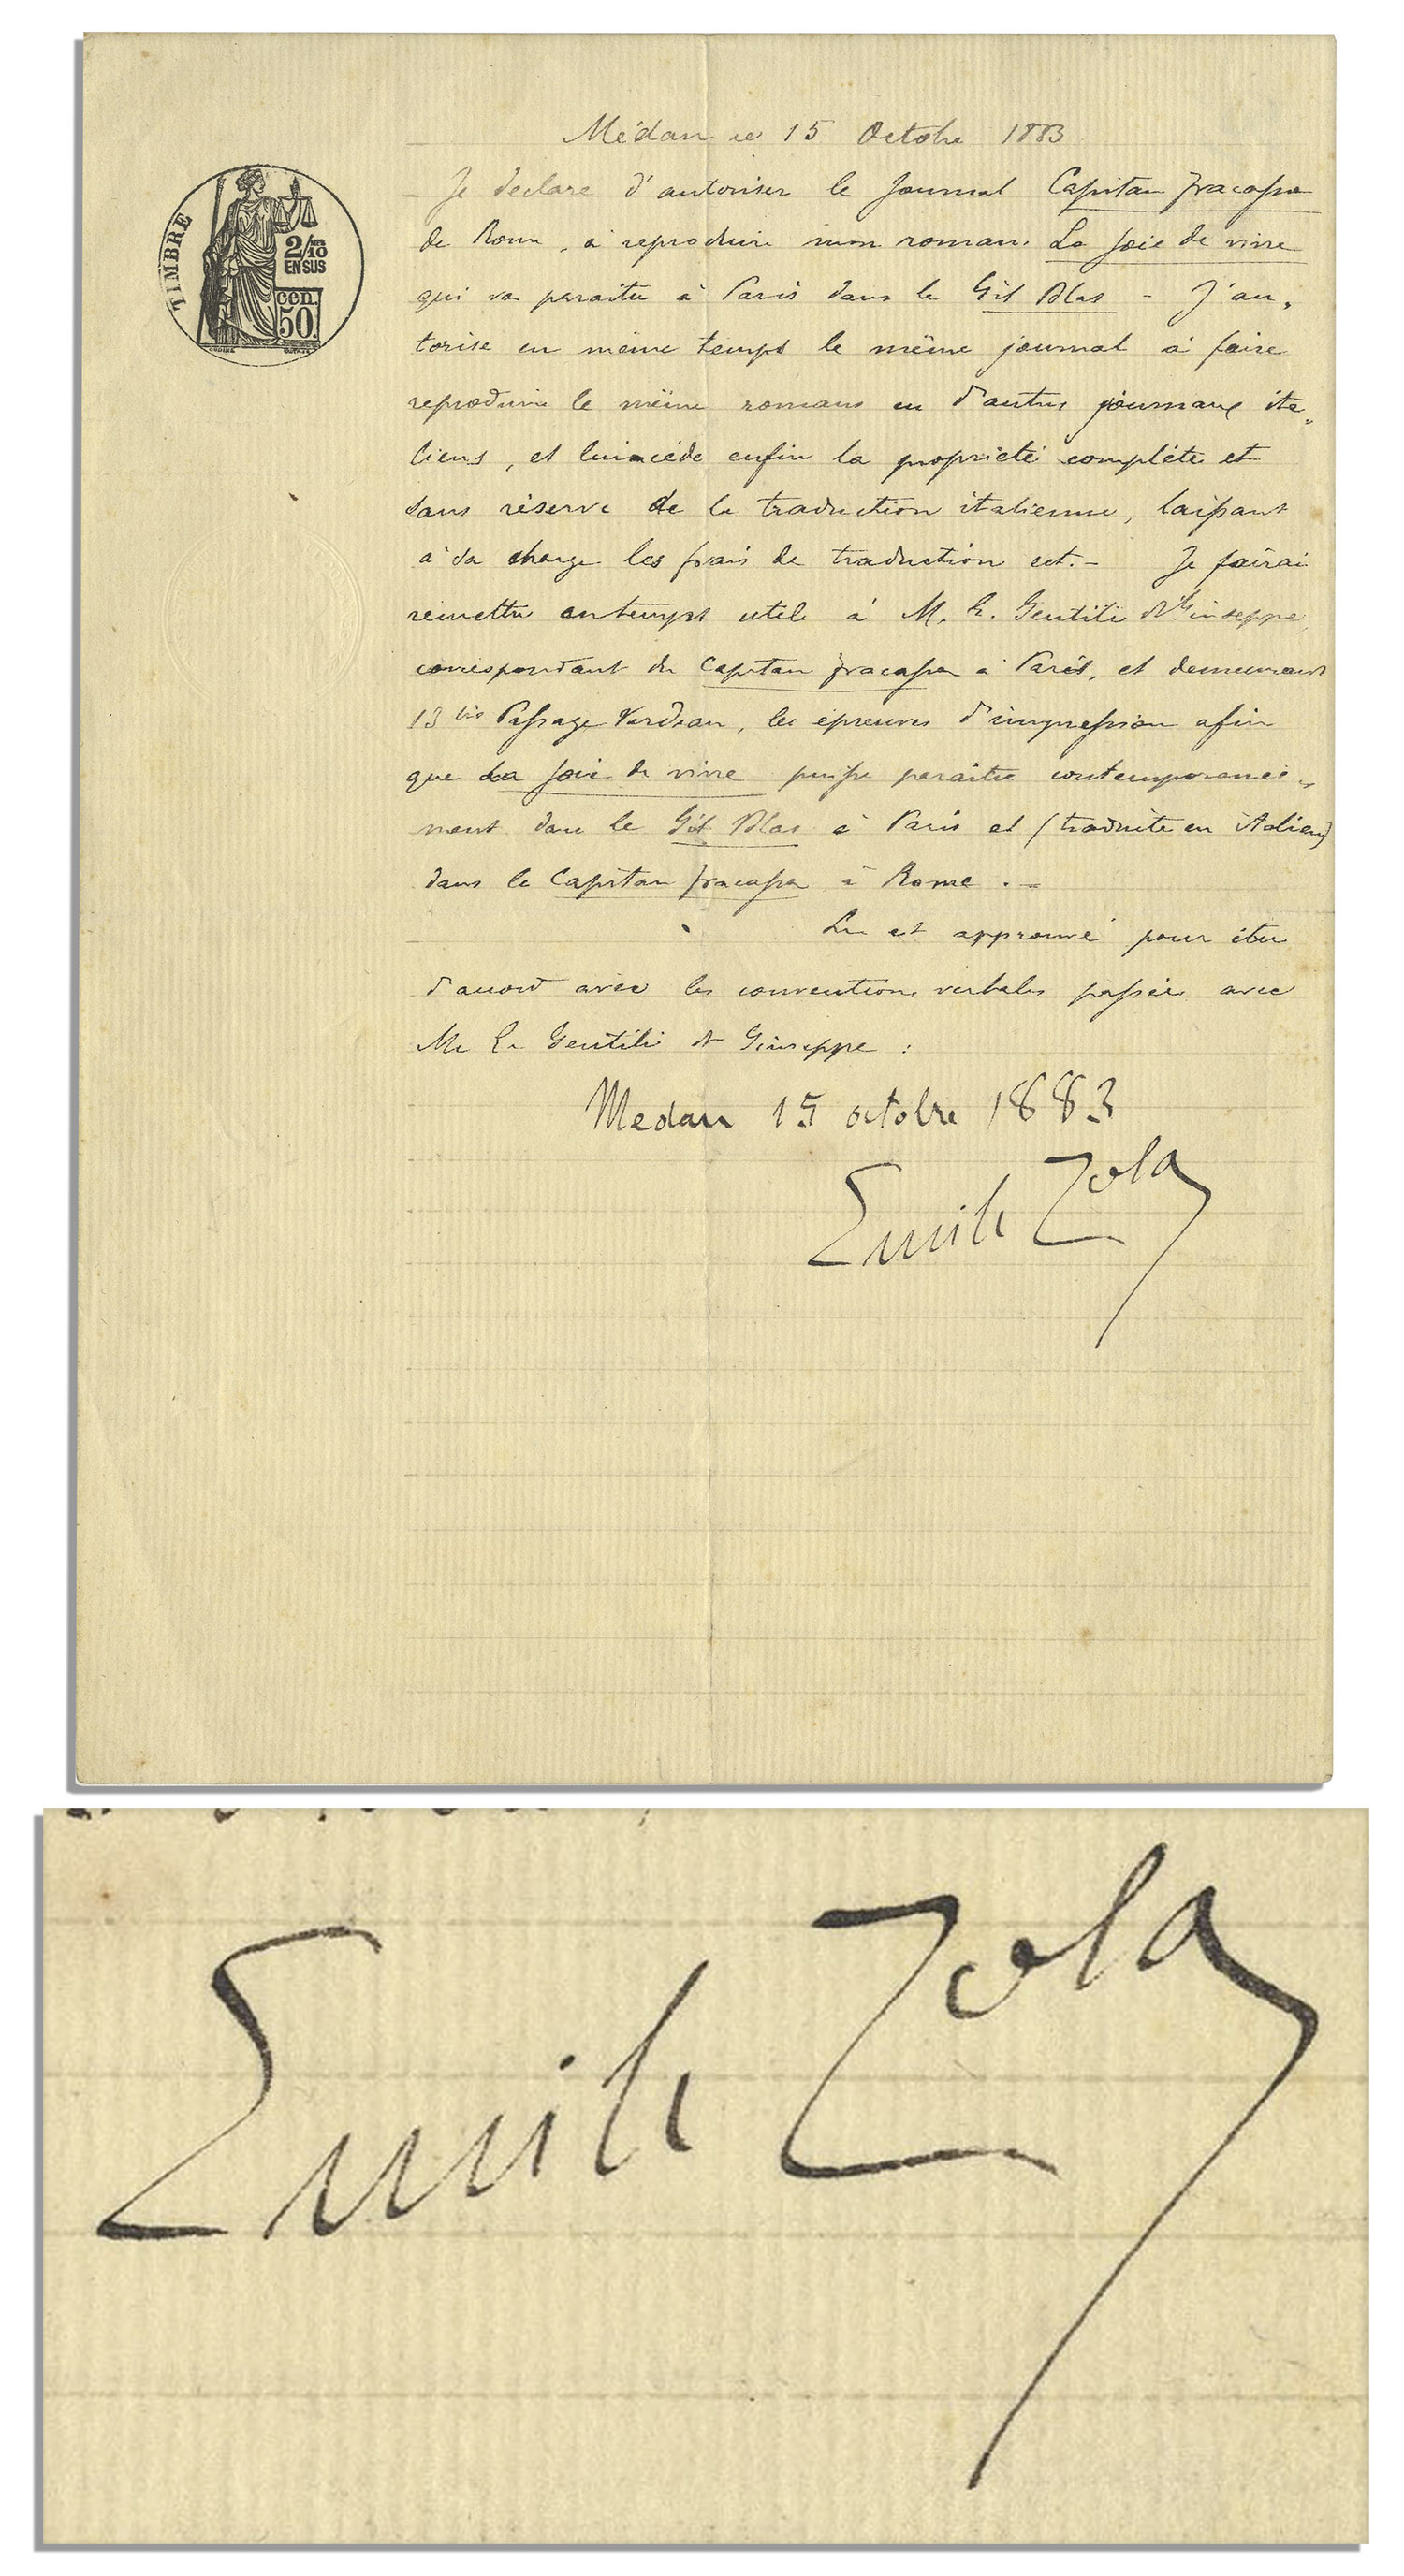 Médan ce 15 Octobre 1883
TIMBRE
2/10
EN SUS
cen.
50.
Je declare d'autoriser le Journal Capitan Fracassa
de Rome, à reproduire mon roman La Joie de vivre
qui va paraitre à Paris dans le Gil Blas - J'au„
torise en même temps le même journal à faire
reproduire le même romans en d'autres journaux ita„
liens, et lui cède enfin la proprieté complète et
sans réserve de la traduction italienne, laissant
à sa charge les frais de traduction ect. - Je fairai
remettre en temps utile à M. E. Gentili Dr Giuseppe
correspondant du Capitan Fracassa à Paris, et demeurant
13 bis Passage Verdeau, les épreuves d'impression afin
que La Joie de vivre puisse paraitre contemporanée„
ment dans le Gil Blas à Paris et (traduite en Italien)
dans le Capitan Fracassa à Rome . -
Lu et approuvé pour être
d'accord avec les conventions verbales passées avec
Mr E. Gentili Dr Giuseppe :
Medan 15 octobre 1883
Emile Zola
Emile Zola